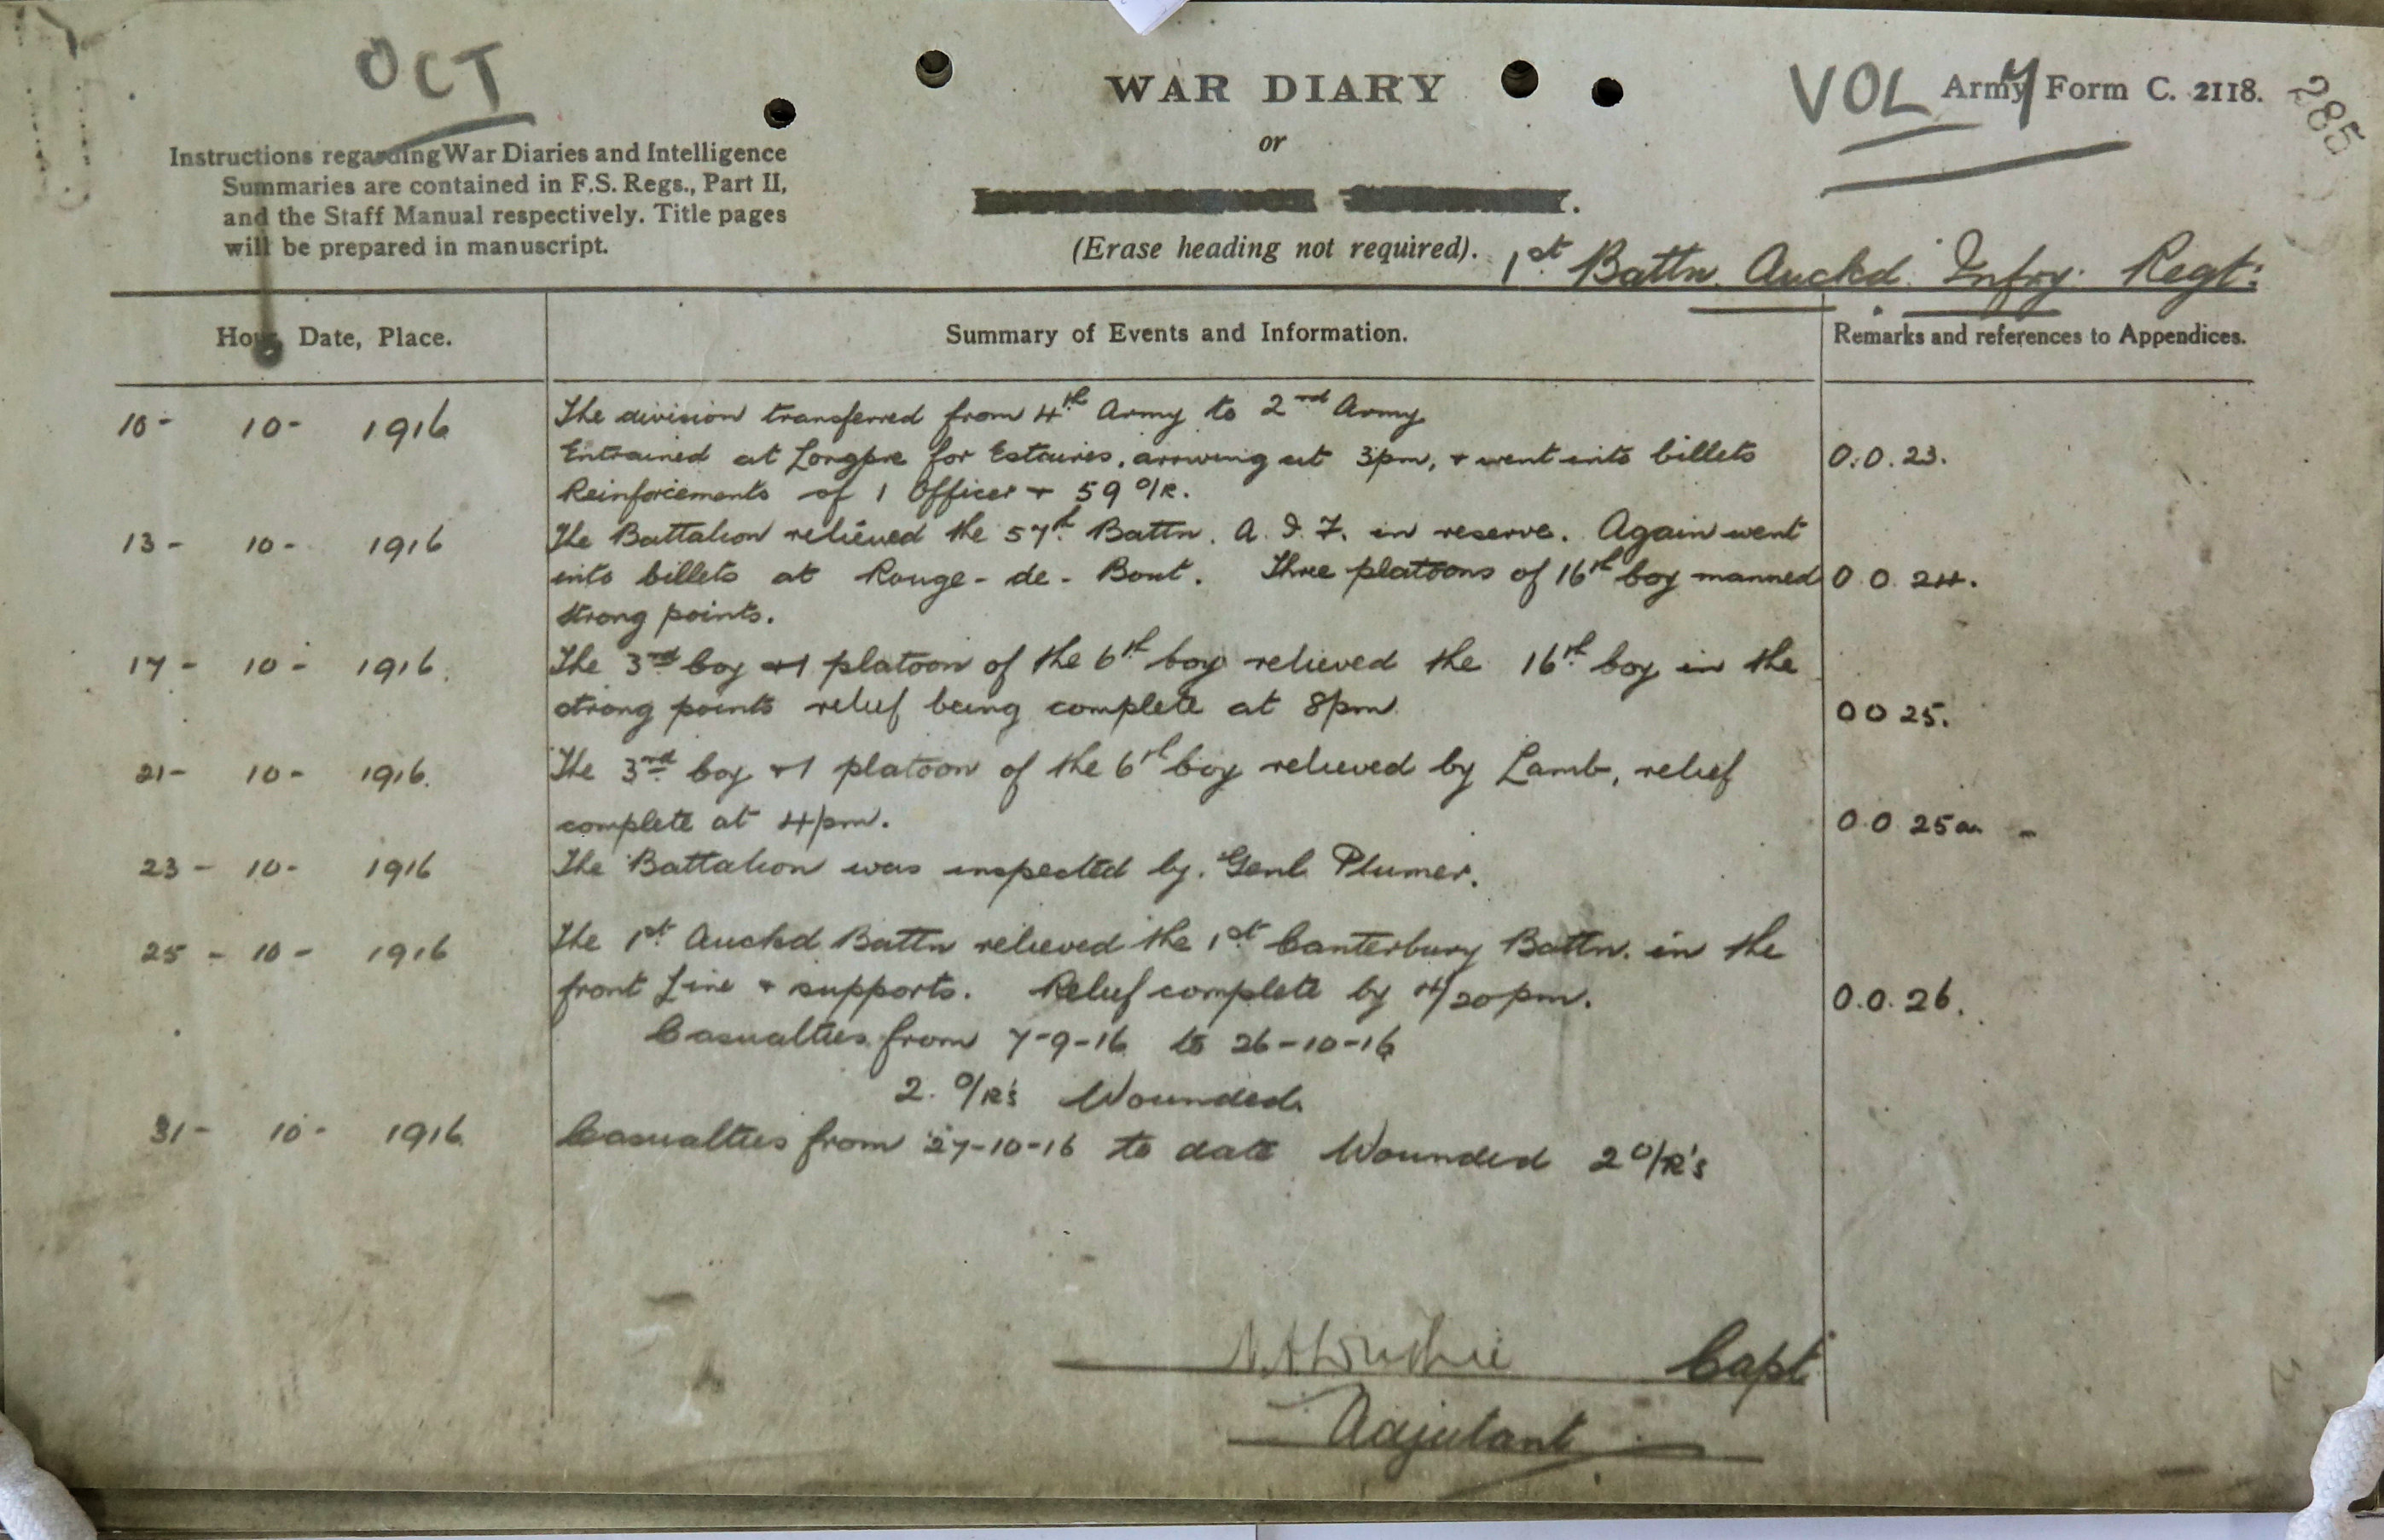 OCT
WAR DIARY
or
(Erase heading not required).
VOL 7
Army Form C. 2118.
285
Instructions regarding War Diaries and Intelligence
Summaries are contained in F.S. Regs., Part II,
and the Staff Manual respectively. Title pages
will be prepared in manuscript.
1st Battn. Auckd. Infy. Regt:
Hour, Date, Place.
Summary of Events and Information.
Remarks and references to Appendices.
10- 10- 1916
The division transferred from 4th Army to 2nd Army
Entrained at Longpre for Estaires, arriving at 3pm, + went into billets O.O. 23.
Reinforcements of 1 Officer + 59 O/R.
13- 10- 1916 The Battalion relieved the 57th Battn. A. I. F. in reserve. Again went
into billets at Rouge-de-Bout. Three platoons of 16th Coy manned O O 24.
strong points.
17- 10- 1916. The 3rd Coy +1 platoon of the 6th Coy relieved the 16th Coy in the
strong points relief being complete at 8pm O O 25.
21- 10- 1916. The 3rd Coy +1 platoon of the 6th Coy relieved by Lamb, relief
complete at 4pm. O O 25a -
23- 10- 1916 The Battalion was inspected by. Genl. Plumer.
25- 10- 1916 The 1st Auckd. Battn relieved the 1st Canterbury Battn. in the
front Line + supports. Relief complete by 4/20pm. O.O. 26.
Casualties from 7-9-16 to 26-10-16
2. O/R's Wounded.
31- 10- 1916 Casualties from 27-10-16 to date Wounded 2 O/R's
Capt
Adjutant